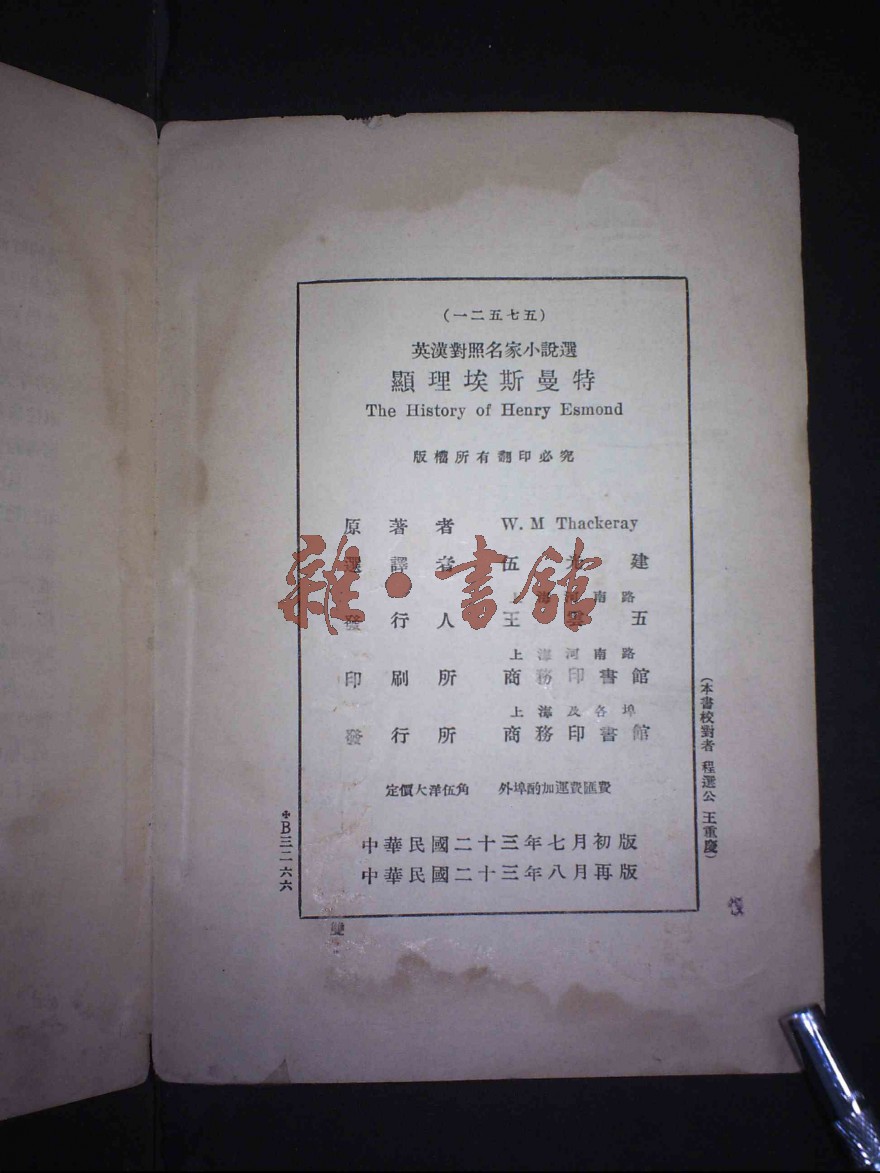 (一二五七五)
英漢對照名家小說選
顯理埃斯曼特
The History of Henry Esmond
版權所有翻印必究
原著者 W. M Thackeray
選譯者 伍光建
上海河南路
發行人 王雲五
上海河南路
印刷所 商務印書館
上海及各埠
發行所 商務印書館
定價大洋伍角 外埠酌加運費匯費
中華民國二十三年七月初版
中華民國二十三年八月再版
(本書校對者 程選公 王重慶)
B三二六六
雜·書館